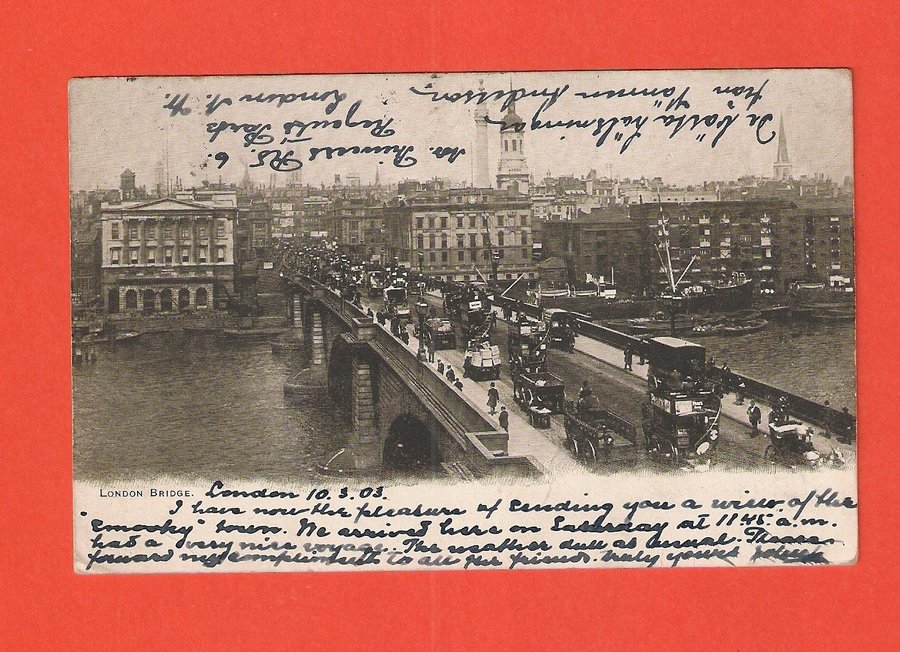 De bästa hälsningar
från Hammer Anderson,
Adr. Princess Rd 6.
Regent's Park
London N.W.
LONDON BRIDGE. London 10.3.03.
I have now the pleasure of sending you a view of the
"smoaky" town. We arrived here on Saturday at 11.45 a.m.
had a very nice voyage. The weather dull as usual. Please
forward my compliments to all the friends. truly yours